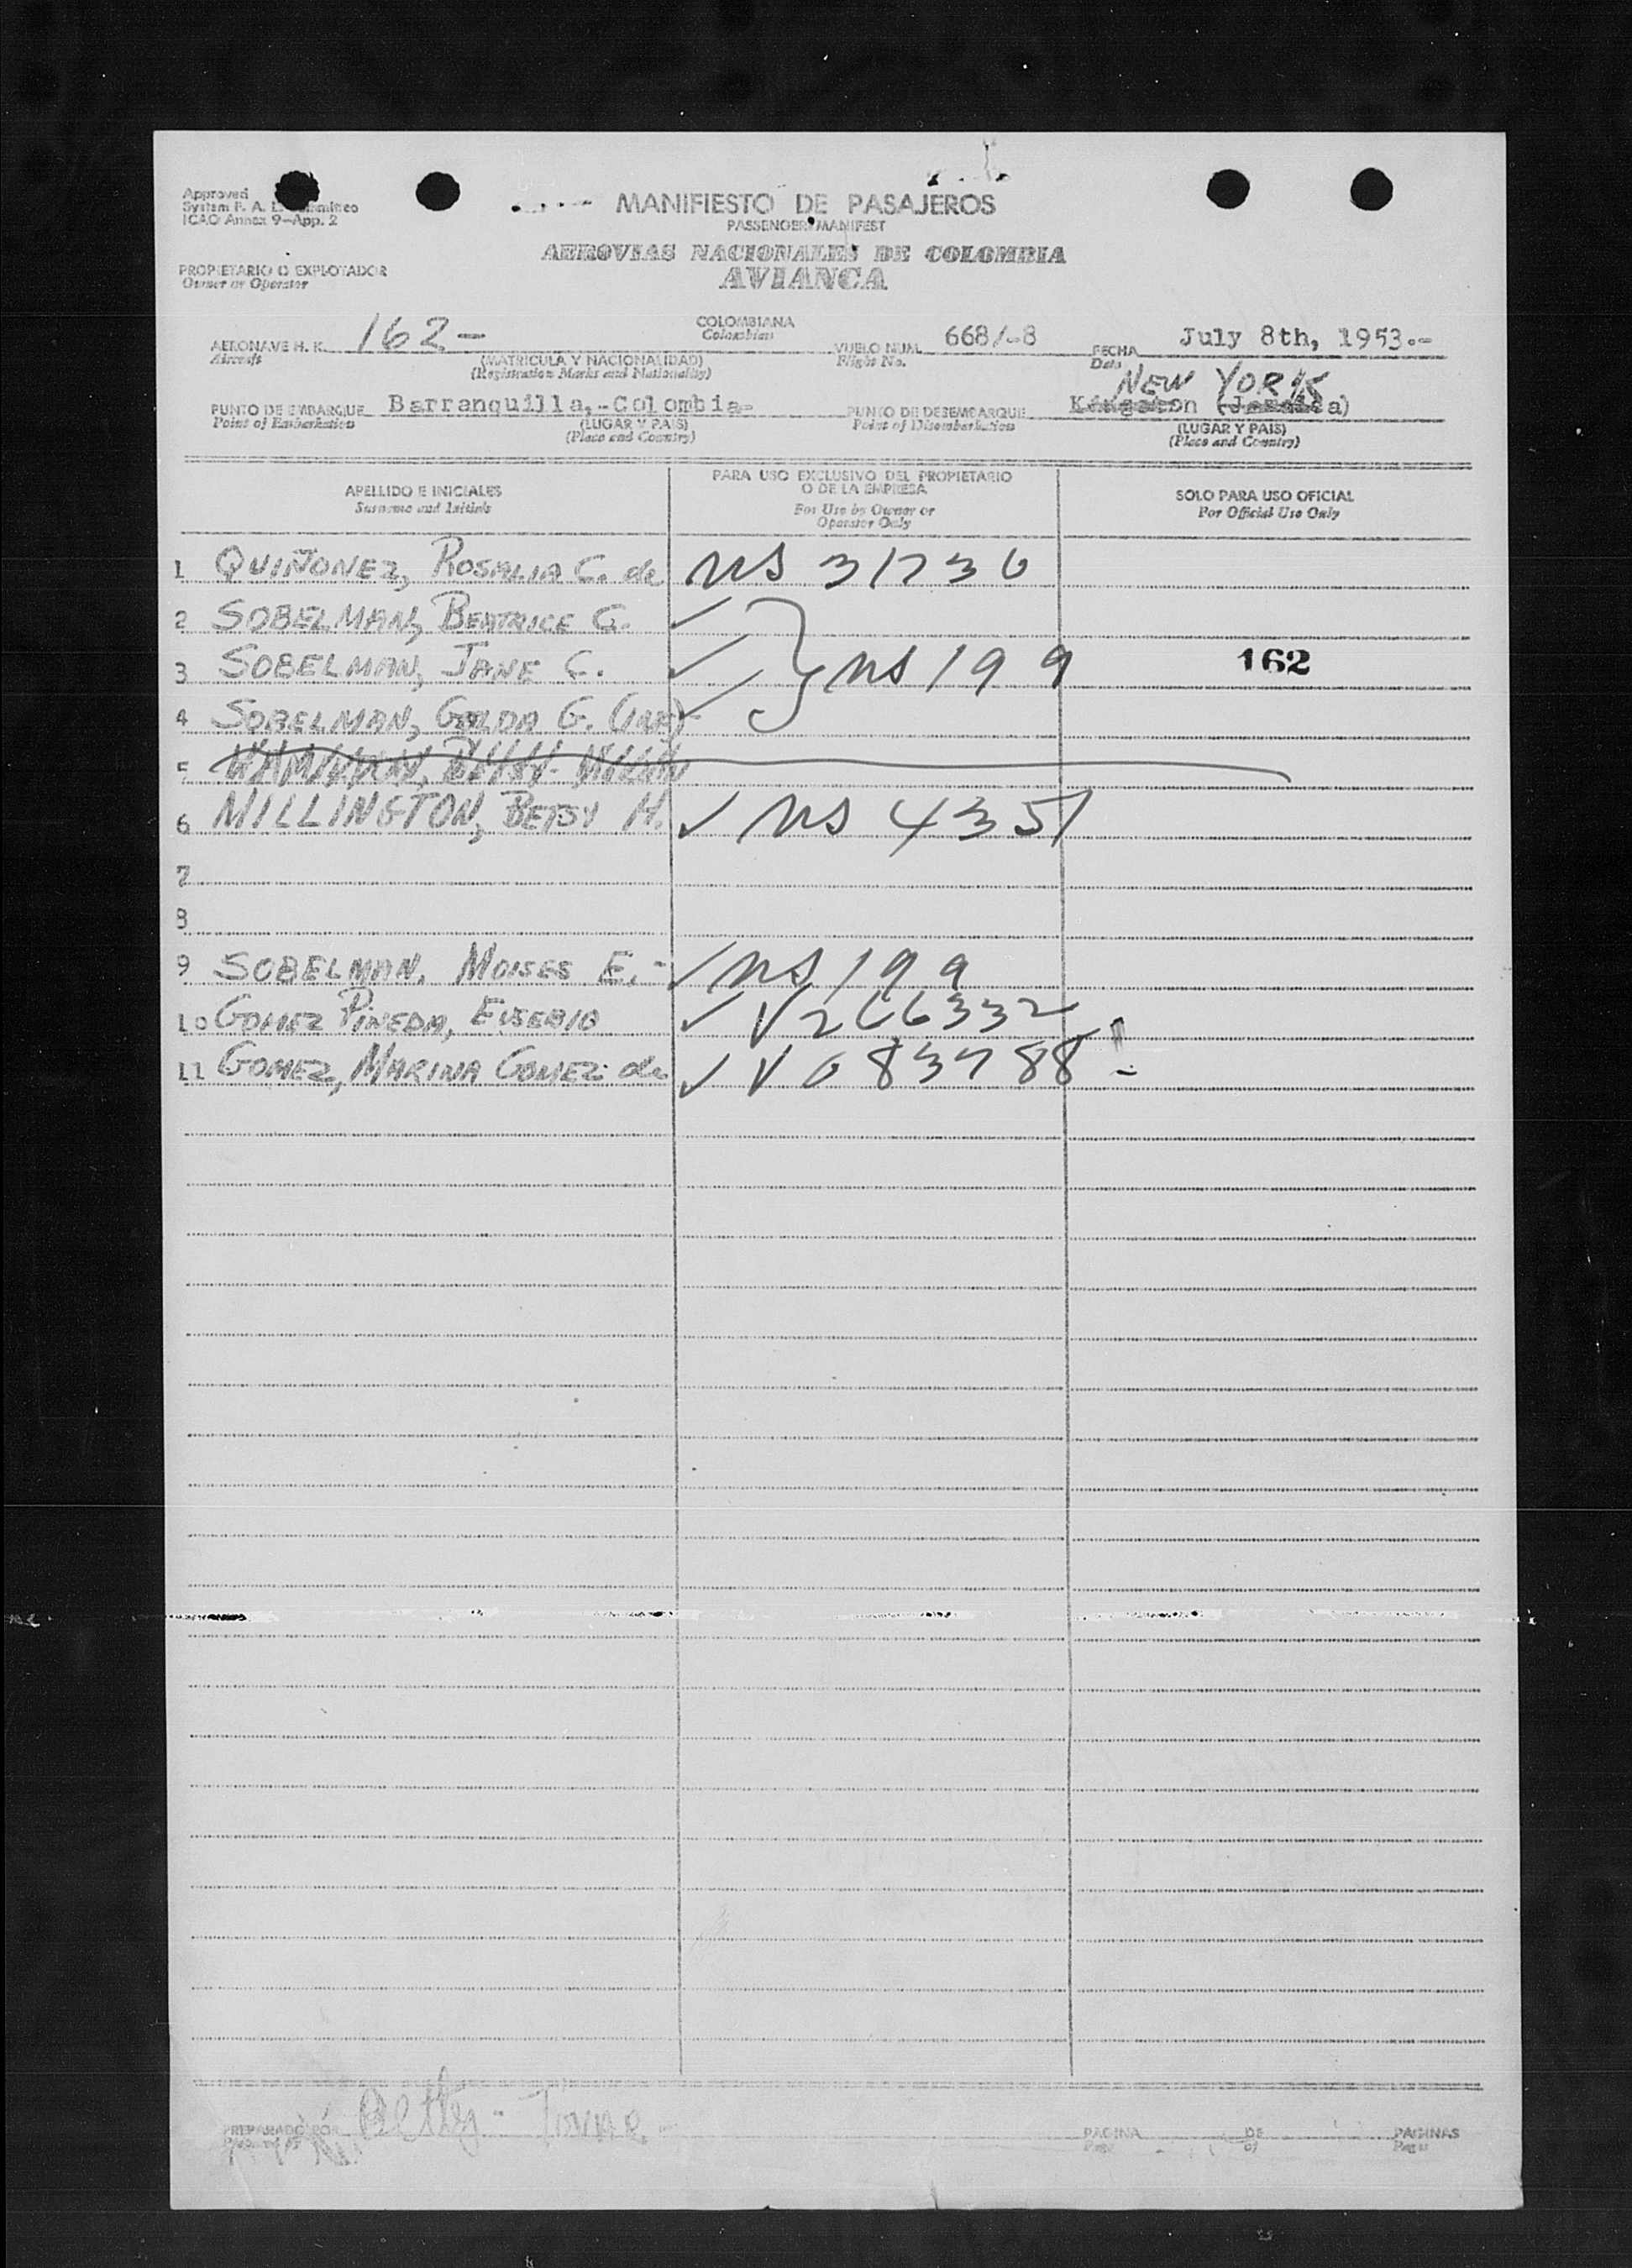 Approved
System F. A. L. Committee
ICAO Annex 9-App. 2
MANIFIESTO DE PASAJEROS
PASSENGER MANIFEST
AEROVIAS NACIONALES DE COLOMBIA
AVIANCA
PROPIETARIO O EXPLOTADOR
Owner or Operator
AERONAVE H. K. 162-
Aircraft
COLOMBIANA
Colombian
(MATRICULA Y NACIONALIDAD)
(Registration Marks and Nationality)
VUELO NUM. 668/-8
Flight No.
FECHA July 8th, 1953.-
Date
NEW YORK
PUNTO DE EMBARQUE Barranquilla,-Colombia-
Point of Embarkation
(LUGAR Y PAIS)
(Place and Country)
PUNTO DE DESEMBARQUE Kingston (Jamaica)
Point of Disembarkation
(LUGAR Y PAIS)
(Place and Country)
APELLIDO E INICIALES
Surname and Initials
PARA USO EXCLUSIVO DEL PROPIETARIO
O DE LA EMPRESA
For Use by Owner or
Operator Only
SOLO PARA USO OFICIAL
For Official Use Only
1 QUIÑONEZ, ROSALIA C. de NS 31736
2 SOBELMAN, BEATRICE G. ✓
3 SOBELMAN, JANE C. ✓ } NS 199 162
4 SOBELMAN, GOLDA G. (INF)- ✓
5
6 MILLINGTON, BETSY H. ✓ NS 4357
7
8
9 SOBELMAN, MOISES E.- ✓ NS 199
10 GOMEZ PINEDA, EUSEBIO ✓ V 266332
11 GOMEZ, MARINA GOMEZ de ✓ V 083788 -
PREPARADO POR Betty-
PAGINA DE PAGINAS
Page of Pages